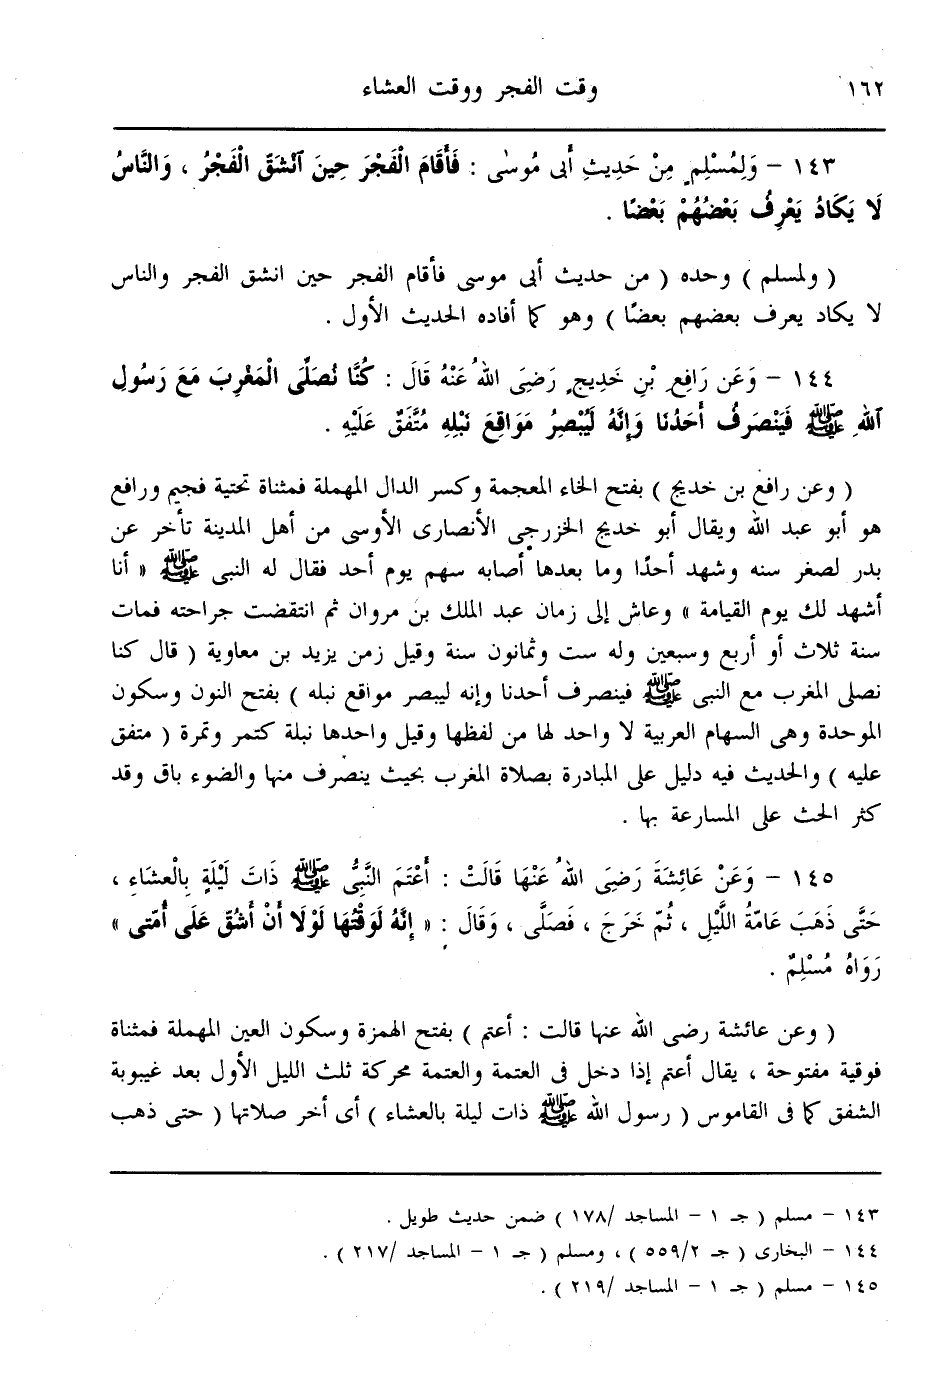 ١٦٢ وقت الفجر ووقت العشاء
١٤٣ – وَلِمُسْلِمٍ مِنْ حَدِيثِ أَبِى مُوسٰى : فَأَقَامَ الْفَجْرَ حِينَ ٱنْشَقَّ الْفَجْرُ ، وَالنَّاسُ
لَا يَكَادُ يَعْرِفُ بَعْضُهُمْ بَعْضًا .
( ولمسلم ) وحده ( من حديث أبى موسى فأقام الفجر حين انشق الفجر والناس
لا يكاد يعرف بعضهم بعضًا ) وهو كما أفاده الحديث الأول .
١٤٤ – وَعَن رَافِعِ بْنِ خَدِيجٍ رَضِىَ اللهُ عَنْهُ قَالَ : كُنَّا نُصَلِّى الْمَغْرِبَ مَعَ رَسُولِ
ٱللهِ ﷺ فَيَنْصَرِفُ أَحَدُنَا وَإِنَّهُ لَيُبْصِرُ مَوَاقِعَ نَبْلِهِ مُتَّفَقٌ عَلَيْهِ .
( وعن رافع بن خديج ) بفتح الخاء المعجمة وكسر الدال المهملة فمثناة تحتية فجيم ورافع
هو أبو عبد الله ويقال أبو خديج الخزرجى الأنصارى الأوسى من أهل المدينة تأخر عن
بدر لصغر سنه وشهد أحدًا وما بعدها أصابه سهم يوم أحد فقال له النبى ﷺ « أنا
أشهد لك يوم القيامة » وعاش إلى زمان عبد الملك بن مروان ثم انتقضت جراحته فمات
سنة ثلاث أو أربع وسبعين وله ست وثمانون سنة وقيل زمن يزيد بن معاوية ( قال كنا
نصلى المغرب مع النبى ﷺ فينصرف أحدنا وإنه ليبصر مواقع نبله ) بفتح النون وسكون
الموحدة وهى السهام العربية لا واحد لها من لفظها وقيل واحدها نبلة كتمر وتمرة ( متفق
عليه ) والحديث فيه دليل على المبادرة بصلاة المغرب بحيث ينصرف منها والضوء باق وقد
كثر الحث على المسارعة بها .
١٤٥ – وَعَنْ عَائِشَةَ رَضِىَ اللهُ عَنْهَا قَالَتْ : أَعْتَمَ النَّبِىُّ ﷺ ذَاتَ لَيْلَةٍ بِالْعشَاءِ ،
حَتَّى ذَهَبَ عَامَّةُ اللَّيْلِ ، ثُمّ خَرَجَ ، فَصَلَّى ، وَقَالَ : « إِنَّهُ لَوَقْتُهَا لَوْلَا أَنْ أَشُقّ عَلَى أُمّتى »
رَوَاهُ مُسْلِمٌ .
( وعن عائشة رضى الله عنها قالت : أعتم ) بفتح الهمزة وسكون العين المهملة فمثناة
فوقية مفتوحة ، يقال أعتم إذا دخل فى العتمة والعتمة محركة ثلث الليل الأول بعد غيبوبة
الشفق كما فى القاموس ( رسول الله ﷺ ذات ليلة بالعشاء ) أى أخر صلاتها ( حتى ذهب
١٤٣ – مسلم ( جـ ١ – المساجد /١٧٨ ) ضمن حديث طويل .
١٤٤ – البخارى ( جـ ٥٥٩/٢ ) ، ومسلم ( جـ ١ – المساجد /٢١٧ ) .
١٤٥ – مسلم ( جـ ١ – المساجد /٢١٩ ) .